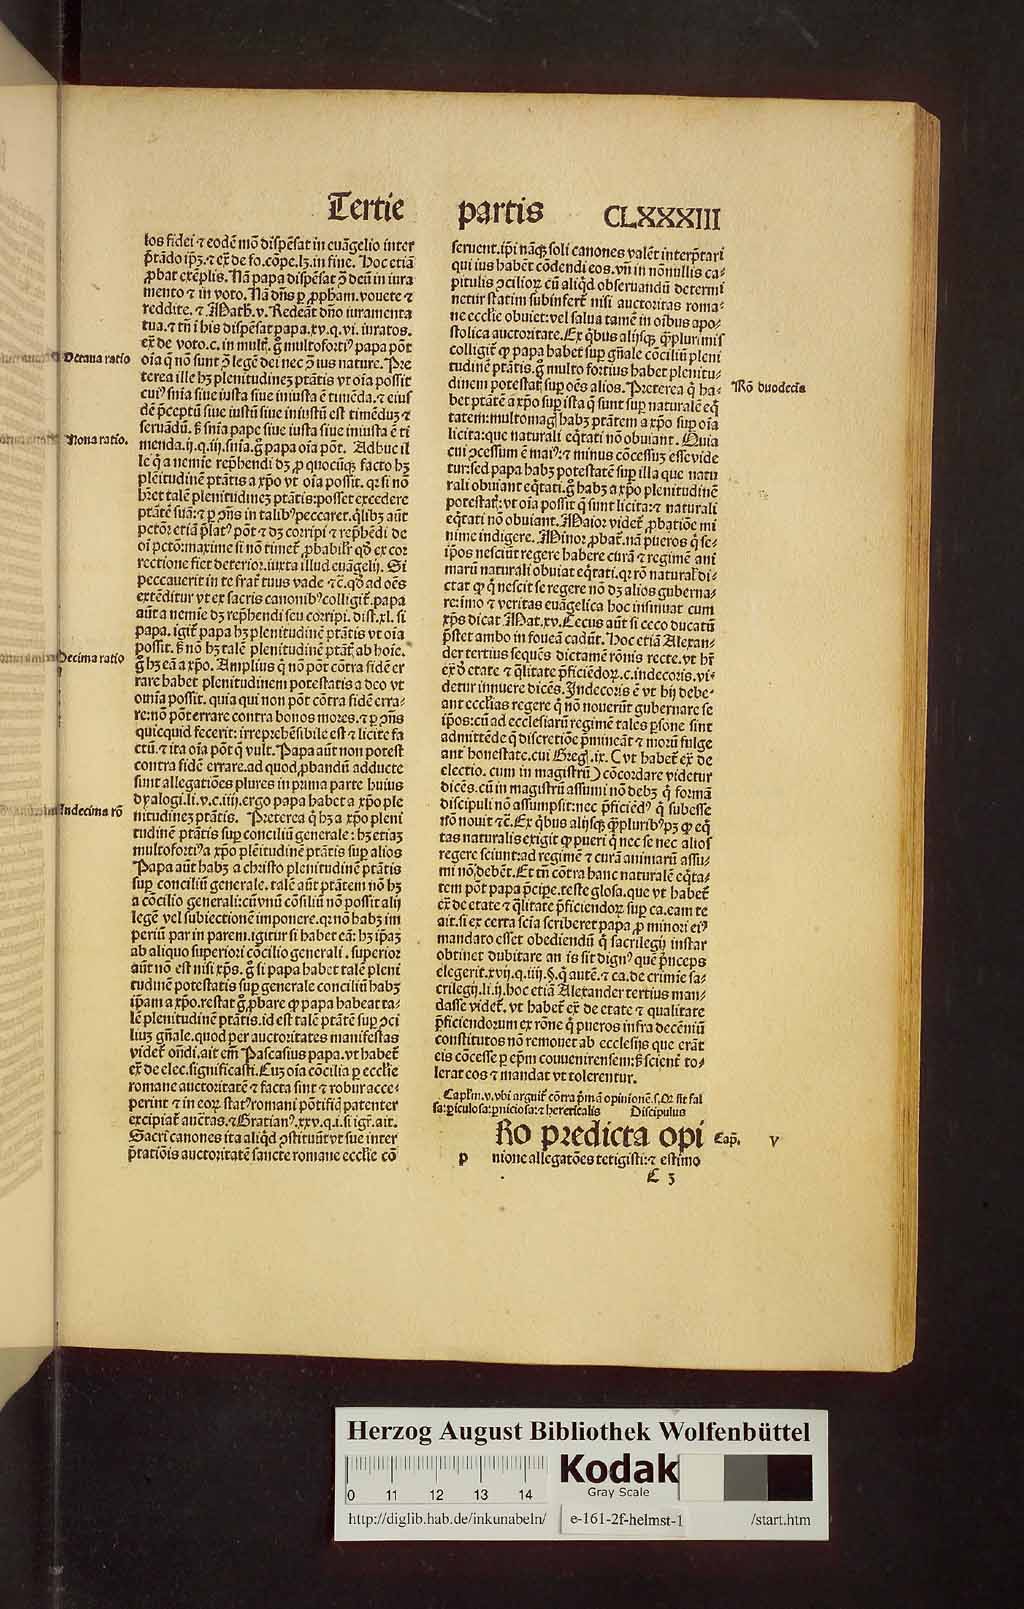 Tertie partis CLXXXIII
los fidei ⁊ eodē mō dispēsat in euāgelio inter
p̄tādo ip̄ʒ. ⁊ ex̄ de so. cōpe. lʒ. in fine. Hoc etiā
ꝓbat exēplis. Nā papa dispēsat ꝯ deū in iura
mento ⁊ in voto. Nā dn̄s ꝑ ꝓpham. vouete ⁊
reddite. ⁊ Math. v. Redeāt dn̄o iuramenta
tua. ⁊ tn̄ i his dispēsat papa. xv. q. vi. iuratos.
ex̄ de voto. c. in mult̄. g̊ multofortiꝰ papa pōt
Octaua ratio
oīa q̄ nō sunt ꝯ legē dei nec ꝯ ius nature. Pre
terea ille hʒ plenitudineʒ ptātis vt oīa possit
cuiꝰ snīa siue iusta siue iniusta ē timēda. ⁊ eiuſ
dē p̄ceptū siue iustū siue iniustū est timēduʒ ⁊
seruādū. sʒ snīa pape siue iusta siue iniusta ē ti
Nona ratio.
menda. ij. q. iij. snīa. g̊ papa oīa pōt. Adhuc il
le q̄ a nemie rep̄hendi dʒ ꝓ quocūqʒ facto hʒ
plēitudinē ptātis a xp̄o vt oīa possit. qꝛ si nō
h̄et talē plenitudineʒ ptātis: posset excedere
ptātē suā: ⁊ ꝑ ꝯn̄s in talibꝰ peccaret. q̄libʒ aūt
pctōꝛ etiā p̄latꝰ pōt ⁊ dʒ corripi ⁊ rep̄hēdi de
oī pctō: maxime si nō timet̄ ꝓbabilr̄ qđ ex cor
rectione fiet deterior. iuxta illud euāgelij. Si
peccauerit in te frat̄ tuus vade ⁊c̄. qđ ad oēs
extēditur vt ex sacris canonibꝰ colligit̄. papa
aūt a nemie dʒ rep̄hendi seu corripi. dist. xl. si
papa. igit̄ papa hʒ plenitudinē ptātis vt oīa
possit. sʒ nō hʒ talē plenitudinē ptāt̄ ab hoīe.
Decima ratio
g̊ hʒ eā a xp̄o. Amplius q̄ nō pōt cōtra fidē er
rare habet plenitudinem potestatis a deo vt
omīa possit. quia qui non pōt cōtra fidē erra⸗
re: nō pōt errare contra bonos mores. ⁊ ꝑ ꝯn̄s
quicquid fecerit: irreprehēsibile est ⁊ licite fa
ctū. ⁊ ita oīa pōt q̄ vult. Papa aūt non potest
contra fidē errare. ad quod ꝓbandū adducte
sunt allegatiōes plures in prima parte huius
dyalogi. li. v. c. iij. ergo papa habet a xp̄o ple
Undecima rō
nitudineʒ ptātis. Preterea q̄ hʒ a xp̄o pleni
tudinē ptātis suꝑ conciliū generale: hʒ etiaʒ
multofortiꝰ a xp̄o plēitudinē ptātis suꝑ alios
Papa aūt habʒ a christo plenitudinē ptātis
suꝑ conciliū generale. talē aūt ptātem nō hʒ
a cōcilio generali: cū vnū cōsiliū nō possit alij
legē vel subiectionē imponere. qꝛ nō habʒ im
periū par in parem. igitur si habet eā: hʒ ip̄aʒ
ab aliquo superiori cōcilio generali. superior
aūt nō est nisi xp̄s. g̊ si papa habet talē pleni
tudinē potestatis suꝑ generale conciliū habʒ
ip̄am a xp̄o. restat g̊ ꝓbare ꝙ papa habeat ta⸗
lē plenitudinē ptātis. id est talē ptātē suꝑ ꝯci
liuʒ gn̄ale. quod per auctoritates manifestas
videt̄ on̄di. ait em̄ Pascasius papa. vt habet̄
ex̄ de elec. significasti. Cuʒ oīa cōcilia ꝑ eccl̄ie
romane auctoritatē ⁊ facta sint ⁊ robur acce⸗
perint ⁊ in eoꝝ statꝰ romani pōtifiq̄ patenter
excipiat̄ auctas. ⁊ Gratianꝰ. xxv. q. i. si igr̄. ait.
Sacri canones ita aliqđ ꝯstituūt vt sue inter
p̄tatiōis auctoritatē sancte romane eccl̄ie cō
seruent. ip̄i nāqʒ soli canones valēt interp̄tari
qui ius habēt cōdendi eos. vn̄ in nōnullis ca⸗
pitulis ꝯcilioꝝ cū aliqđ obseruandū determi
netur statim subinfert̄ nisi auctoritas roma⸗
ne eccl̄ie obuiet: vel salua tamē in oībus apo⸗
stolica auctoritate. Ex q̄bus alijsqʒ q̄ꝫplurimiſ
colligit̄ ꝙ papa habet suꝑ gn̄ale cōciliū pleni
tudinē ptātis. g̊ multo fortius habet plenitu⸗
Rō duodecīa
dinem potestat̄ suꝑ oēs alios. Preterea q̄ ha⸗
bet ptātē a xp̄o suꝑ ista q̄ sunt suꝑ naturalē eq̄
tatem: multomag̓ habʒ ptātem a xp̄o suꝑ oīa
licita: que naturali eq̄tati nō obuiant. Quia
cui ꝯcessum ē maiꝰ: ⁊ minus cōcessuʒ esse vide
tur: sed papa habʒ potestatē suꝑ illa que natu
rali obuiant eq̄tati. g̊ habʒ a xp̄o plenitudinē
potestat̄: vt oīa possit q̄ sunt licita: ⁊ naturali
eq̄tati nō obuiant. Maior videt̄ ꝓbatiōe mi
nime indigere. Minor ꝓbat̄. nā pueros q̄ se⸗
ip̄os nesciūt regere habere curā ⁊ regimē ani
marū naturali obuiat eq̄tati. qꝛ rō natural̓ di⸗
ctat ꝙ q̄ nescit se regere nō dʒ alios guberna⸗
re: imo ⁊ veritas euāgelica hoc insinuat cum
xp̄s dicat Mat. xv. Cecus aūt si ceco ducatū
p̄stet ambo in foueā cadūt. Hoc etiā Alexan⸗
der tertius sequēs dictamē rōnis recte. vt hr̄
ex̄ đ etate ⁊ q̄litate p̄ficiēdoꝝ. c. indecoris. vi⸗
detur innuere dicēs. Indecoris ē vt hij debe⸗
ant ecclīas regere q̄ nō nouerūt gubernare se
ip̄os: cū ad ecclesiarū regimē tales ꝑsone sint
admittēde q̄ discretiōe p̄mineāt ⁊ morū fulge
ant honestate. cui Greg̓. ix. (vt habet̄ ex̄ de
electio. cum in magistrū) cōcordare videtur
dicēs. cū in magistrū assumi nō debʒ q̄ formā
discipuli nō assumpsit: nec p̄ficiēdꝰ q̄ subesse
nō nouit ⁊c̄. Ex q̄bus alijsqʒ q̄ꝫpluribꝰ pʒ ꝙ eq̄
tas naturalis exigit ꝙ pueri q̄ nec se nec alios
regere sciunt: ad regimē ⁊ curā animarū assu⸗
mi nō debēt. Et tn̄ cōtra hanc naturalē eq̄ta⸗
tem pōt papa p̄cipe. teste glosa. que vt habet̄
ex̄ de etate ⁊ q̄litate p̄ficiendoꝝ suꝑ ca. eam te
ait. si ex certa scīa scriberet papa ꝓ minori eiꝰ
mandato esset obediendū q̄ sacrilegij instar
obtinet dubitare an is sit dignꝰ quē p̄nceps
elegerit. xvij. q. iiij. §. q̄ autē. ⁊ ca. de crimie sa⸗
crilegij. li. ij. hoc etiā Alexander tertius man⸗
dasse videt̄. vt habet̄ ex̄ de etate ⁊ qualitate
p̄ficiendorum ex rōne q̄ pueros infra decēniū
constitutos nō remouet ab ecclesijs que erāt
eis cōcesse ꝑ ep̄m couuenirensem: sʒ scient̄ to⸗
lerat eos ⁊ mandat vt tolerentur.
Capl̄m. v. vbi arguit̄ cōtra p̄mā opinionē. s. qꝛ sit fal
sa: ꝑiculosa: ꝑniciosa: ⁊ hereticalis Discipulus
Ro predicta opi Cap̄. v
p nione allegatōes tetigisti: ⁊ estimo
C 3
Herzog August Bibliothek Wolfenbüttel
0 11 12 13 14
Kodak
Gray Scale
http://diglib.hab.de/inkunabeln/ e-161-2f-helmst-1 /start.htm